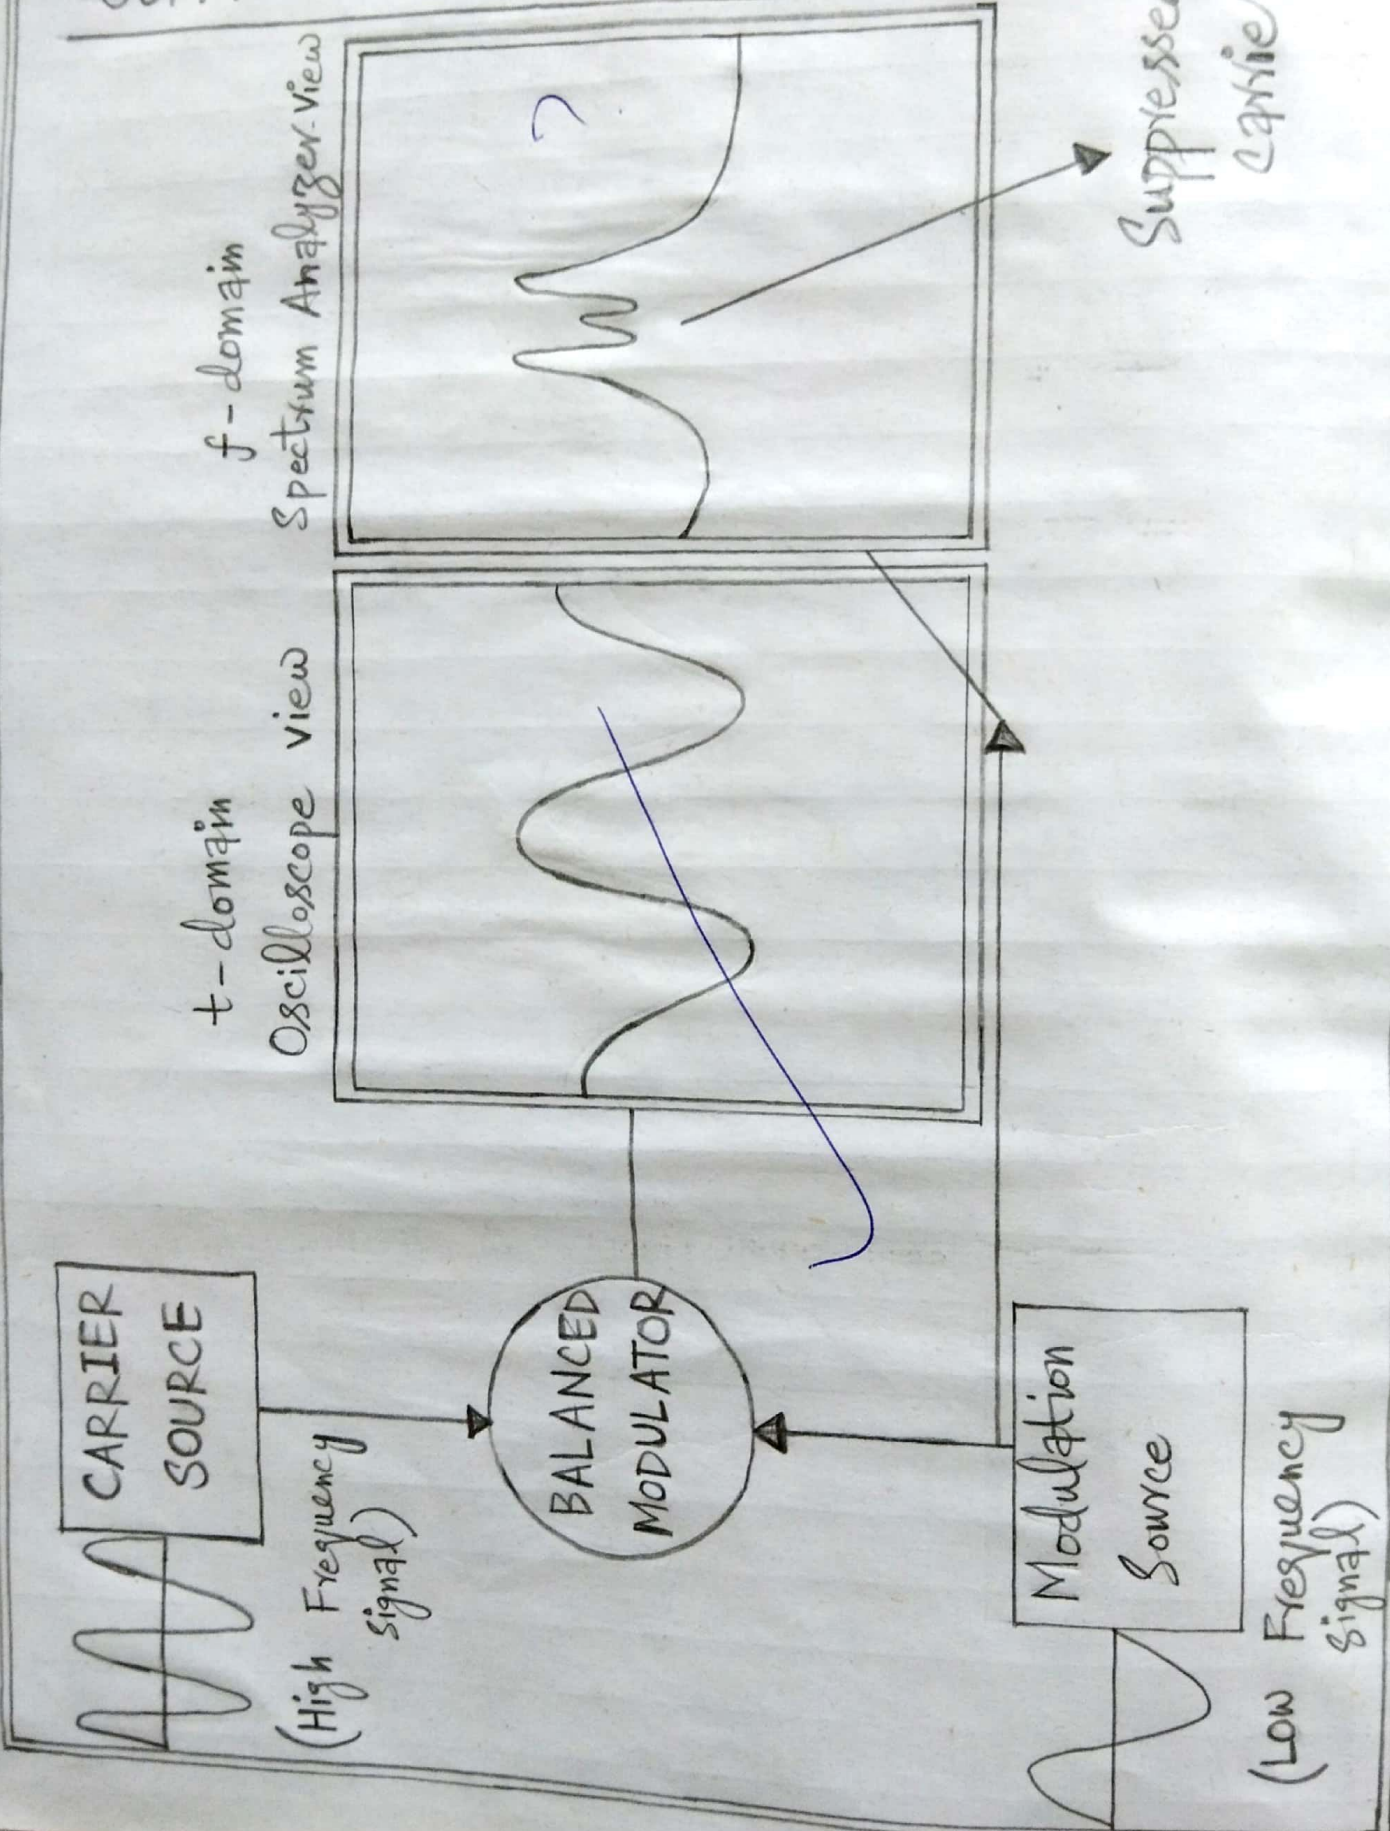 CARRIER
SOURCE
(High Frequency
Signal)
BALANCED
MODULATOR
Modulation
Source
(Low Frequency
Signal)
t-domain
Oscilloscope view
f-domain
Spectrum Analyzer-View
?
Suppresse
Carrie